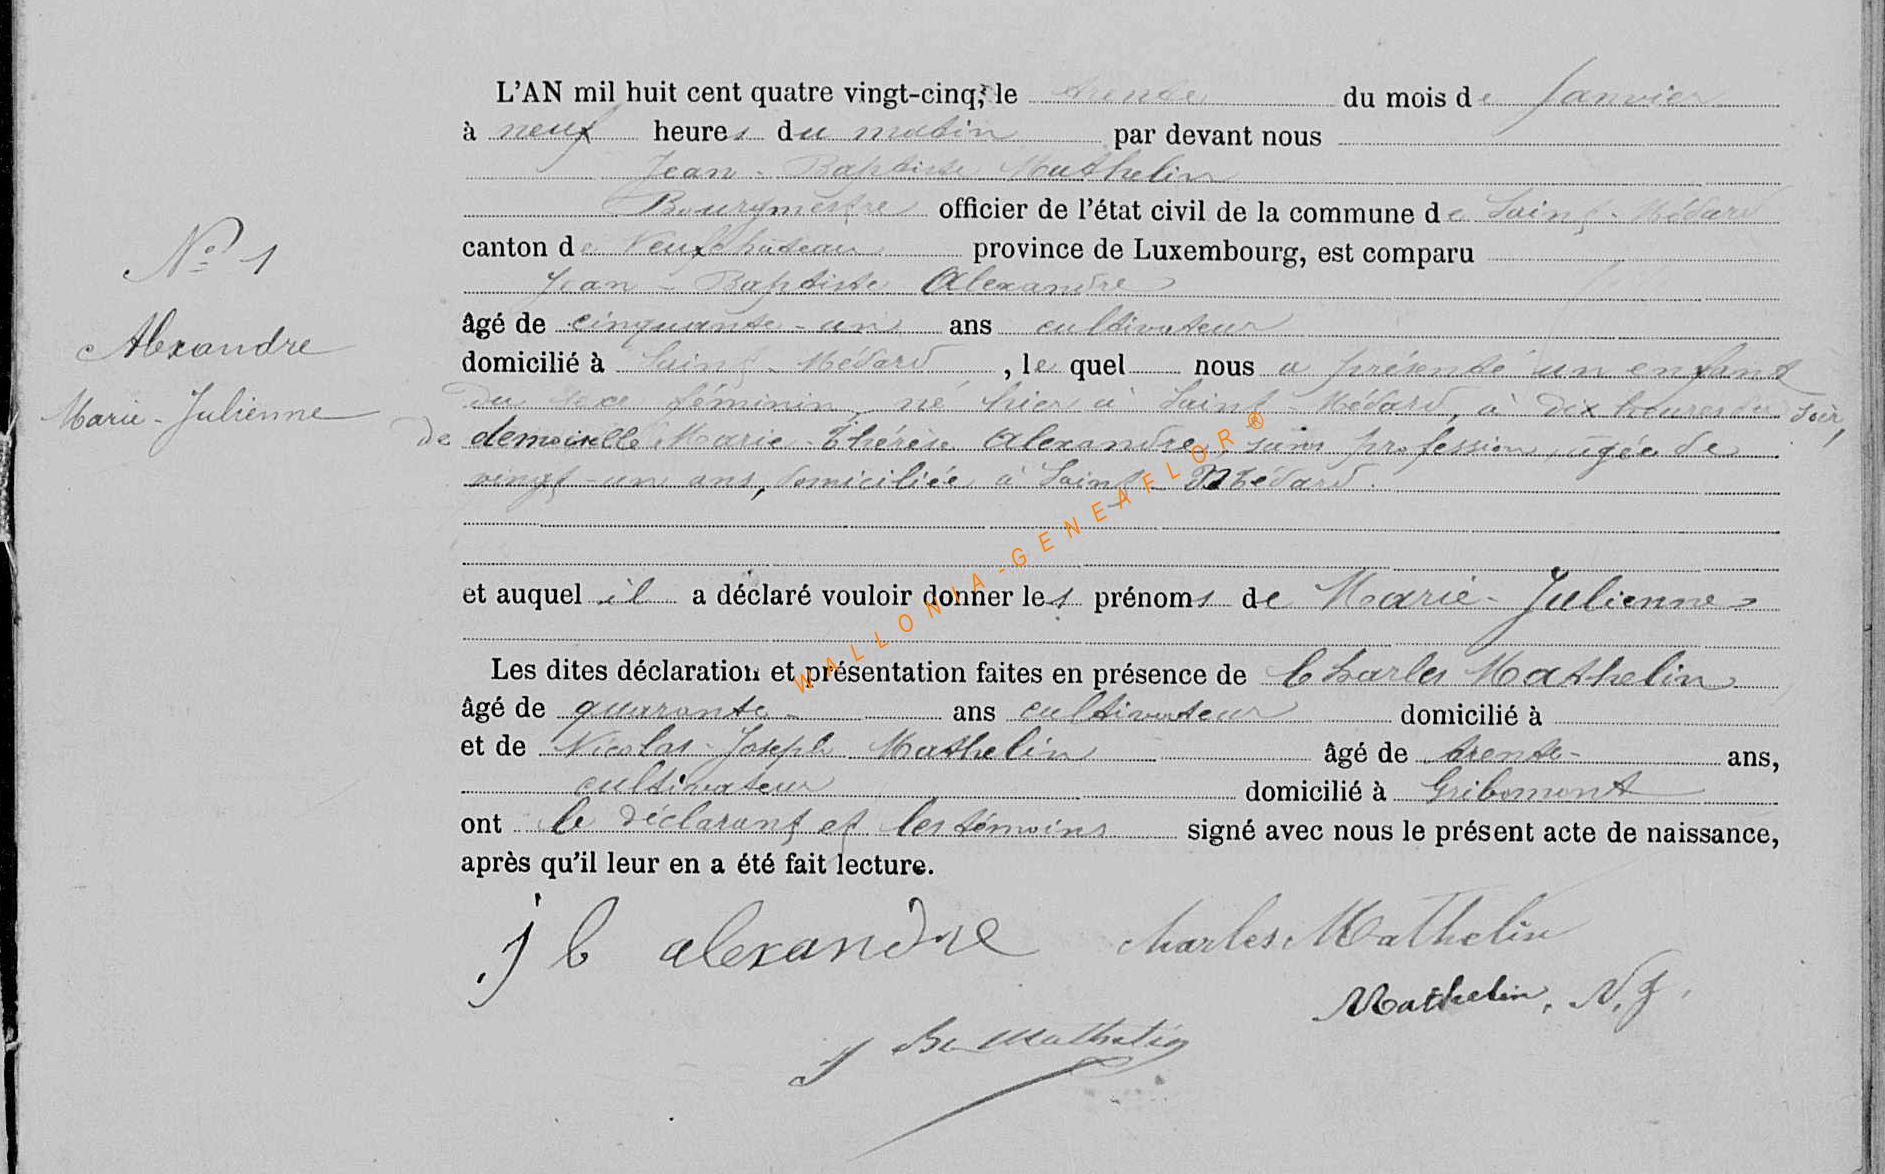 L'AN mil huit cent quatre vingt-cinq, le trente du mois de Janvier
à neuf heures du matin par devant nous
Jean-Baptiste Mathelin
Bourgmestre officier de l'état civil de la commune de Saint-Médard
canton de Neufchâteau province de Luxembourg, est comparu
Jean-Baptiste Alexandre
âgé de cinquante-un ans cultivateur
domicilié à Saint-Médard, le quel nous a présenté un enfant
du sexe féminin, né hier à Saint-Médard, à dix heures du soir,
de demoiselle Marie-Thérèse Alexandre, sans profession, agée de
vingt-un ans, domiciliée à Saint-Médard.
et auquel il a déclaré vouloir donner les prénoms de Marie-Julienne
Les dites déclaration et présentation faites en présence de Charles Mathelin
âgé de quarante- ans cultivateur domicilié à
et de Nicolas-Joseph Mathelin âgé de trente- ans,
cultivateur domicilié à Gribomont
ont le déclarant et les témoins signé avec nous le présent acte de naissance,
après qu'il leur en a été fait lecture.
j b alexandre Charles Mathelin
Mathelin, N. J.
J Bte Mathelin
No 1
Alexandre
Marie-Julienne
WALLONIA-GENEAFLOR®